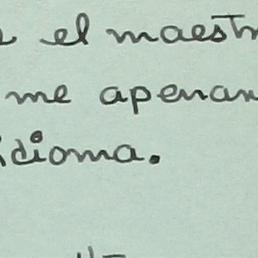 el maestr
me apenan
idioma.